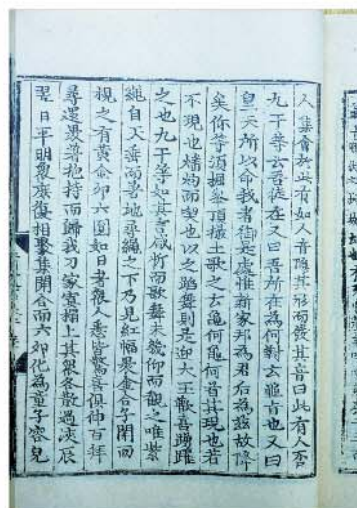 人集會於此有如人音隱其形而發其音曰此有人否
九干等云吾徒在又曰吾所在為何對云龜旨也又曰
皇天所以命我者御是處惟新家邦為君后為玆故降
矣你等湏掘峯頂撮土歌之云龜何龜何首其現也若
不現也燔灼而喫也以之蹈舞則是迎大王歡喜踴躍
之也九干等如其言咸忻而歌舞未幾仰而觀之唯紫
繩自天垂而着地尋繩之下乃見紅幅裹金合子開而
視之有黃金卵六圓如日者衆人悉皆驚喜俱伸百拜
尋還裹著抱持而歸我刀家寘榻上其衆各散過浹辰
翌日平明衆庶復相聚集開合而六卵化為童子容皃